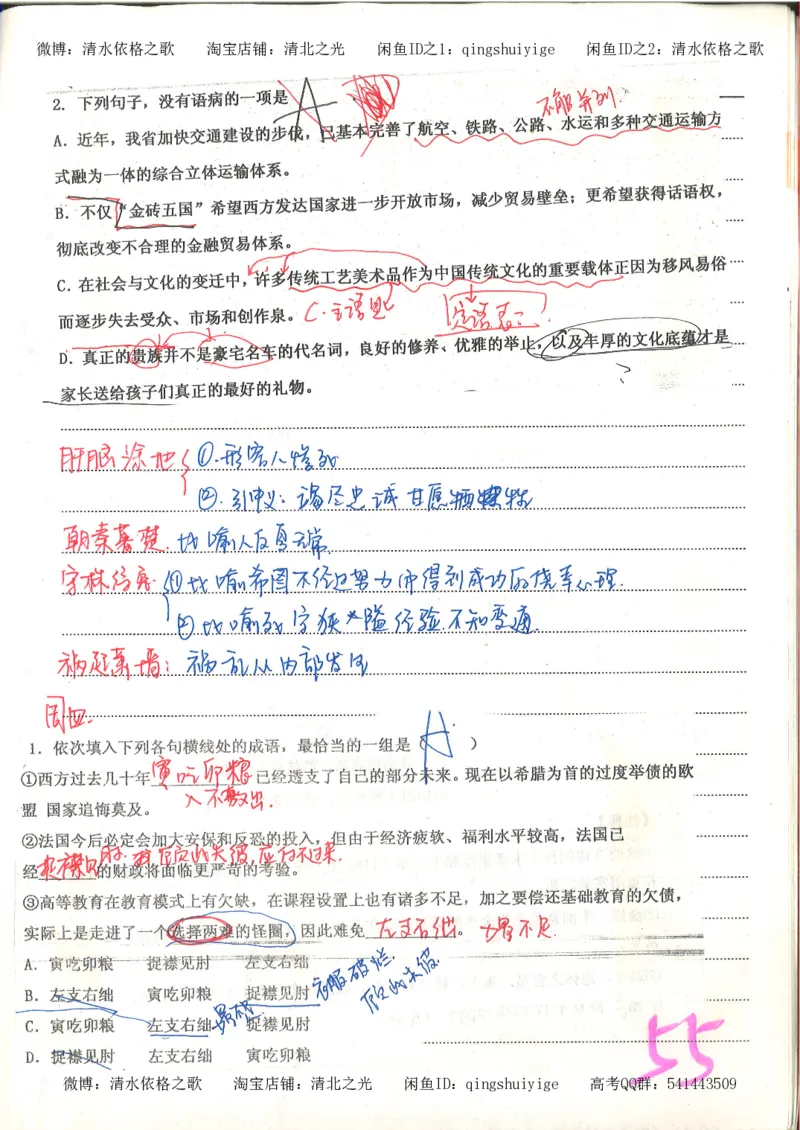 微博：清水依格之歌 淘宝店铺：清北之光 闲鱼ID之1：qingshuiyige 闲鱼ID之2：清水依格之歌
2. 下列句子，没有语病的一项是 A
不能并列.
A. 近年，我省加快交通建设的步伐，已基本完善了航空、铁路、公路、水运和多种交通运输方
式融为一体的综合立体运输体系。
B. 不仅“金砖五国”希望西方发达国家进一步开放市场，减少贸易壁垒；更希望获得话语权，
彻底改变不合理的金融贸易体系。
C. 在社会与文化的变迁中，许多传统工艺美术品作为中国传统文化的重要载体正因为移风易俗
而逐步失去受众、市场和创作泉。
D. 真正的贵族并不是豪宅名车的代名词，良好的修养、优雅的举止，以及丰厚的文化底蕴才是
家长送给孩子们真正的最好的礼物。
肝脑涂地 ①.形容人惨死
②.引申义：竭尽忠诚 甘愿牺牲
朝秦暮楚. 比喻人反复无常.
守株待兔. ①比喻希图不经过努力而得到成功的侥幸心理.
②比喻死守狭隘经验.不知变通.
祸起萧墙：祸乱从内部发生
1. 依次填入下列各句横线处的成语，最恰当的一组是（ A ）
①西方过去几十年 寅吃卯粮 已经透支了自己的部分未来。现在以希腊为首的过度举债的欧
入不敷出.
盟 国家追悔莫及。
②法国今后必定会加大安保和反恐的投入，但由于经济疲软、福利水平较高，法国已
经捉襟见肘.的财政将面临更严苛的考验。
顾此失彼,应付不过来.
③高等教育在教育模式上有欠缺，在课程设置上也有诸多不足，加之要偿还基础教育的欠债，
实际上是走进了一个选择两难的怪圈，因此难免 左支右绌。 力量不足.
A. 寅吃卯粮 捉襟见肘 左支右绌
B. 左支右绌 寅吃卯粮 捉襟见肘 衣服破烂. 顾此失彼
C. 寅吃卯粮 左支右绌 捉襟见肘
D. 捉襟见肘 左支右绌 寅吃卯粮
55
微博：清水依格之歌 淘宝店铺：清北之光 闲鱼ID：qingshuiyige 高考QQ群：541443509